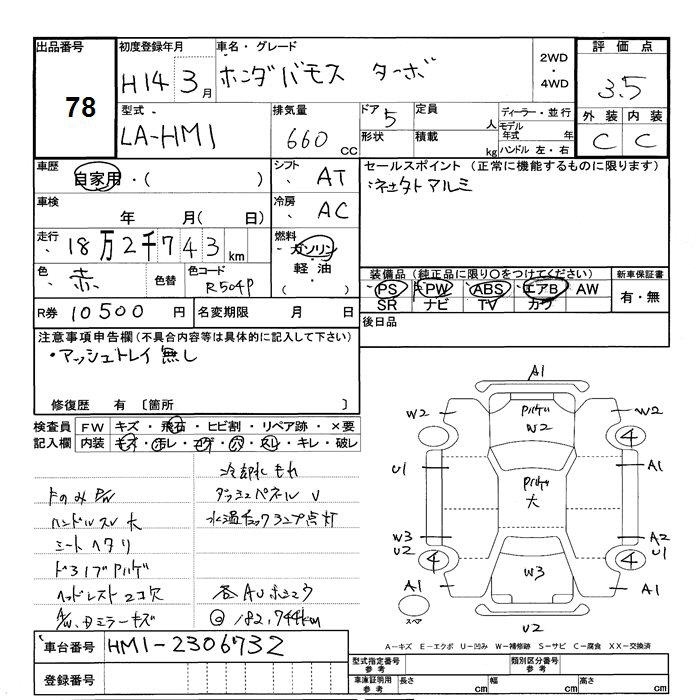 出品番号
78
初度登録年月
H14 3月
車名・グレード
ホンダバモス ターボ
2WD
・
4WD
評価点
3.5
外装 内装
C C
型式
LA-HM1
排気量
660 cc
ドア 5
形状
定員 人
積載 kg
ディーラー・並行
モデル年式 年
ハンドル 左・右
車歴
自家用・( )
シフト
AT
車検
年 月( 日)
冷房
AC
走行
18万2千743 km
燃料
ガソリン
軽油
( )
色
赤
色替
色コード
R504P
R券 10500円
名変期限 月 日
セールスポイント (正常に機能するものに限ります)
装備品 (純正品に限り○をつけてください)
PS PW ABS エアB AW
SR ナビ TV カワ
新車保証書
有・無
後日品
注意事項申告欄(不具合内容等は具体的に記入して下さい)
・アッシュトレイ無し
修復歴 有 〔箇所 〕
検査員 FW キズ・飛石・ヒビ割・リペア跡・×要
記入欄 内装 キズ・汚レ・コゲ・穴・スレ・キレ・破レ
冷却水もれ
ダッシュパネル V
ハンドルスレ大
水温チェックランプ点灯
シートヘタリ
ヘッドレスト2コ欠
182,744km
車台番号 HM1-2306732
登録番号
A1
W2 W2
W2
4
U1 A1
大
W3 A2
U2 U1
4 4
W3
A1 A1
スペア
U2
A−キズ E−エクボ U−凹み W−補修跡 S−サビ C−腐食 XX−交換済
型式指定番号
参考
類別区分番号
参考
車庫証明用
参考
長さ cm 幅 cm 高さ cm